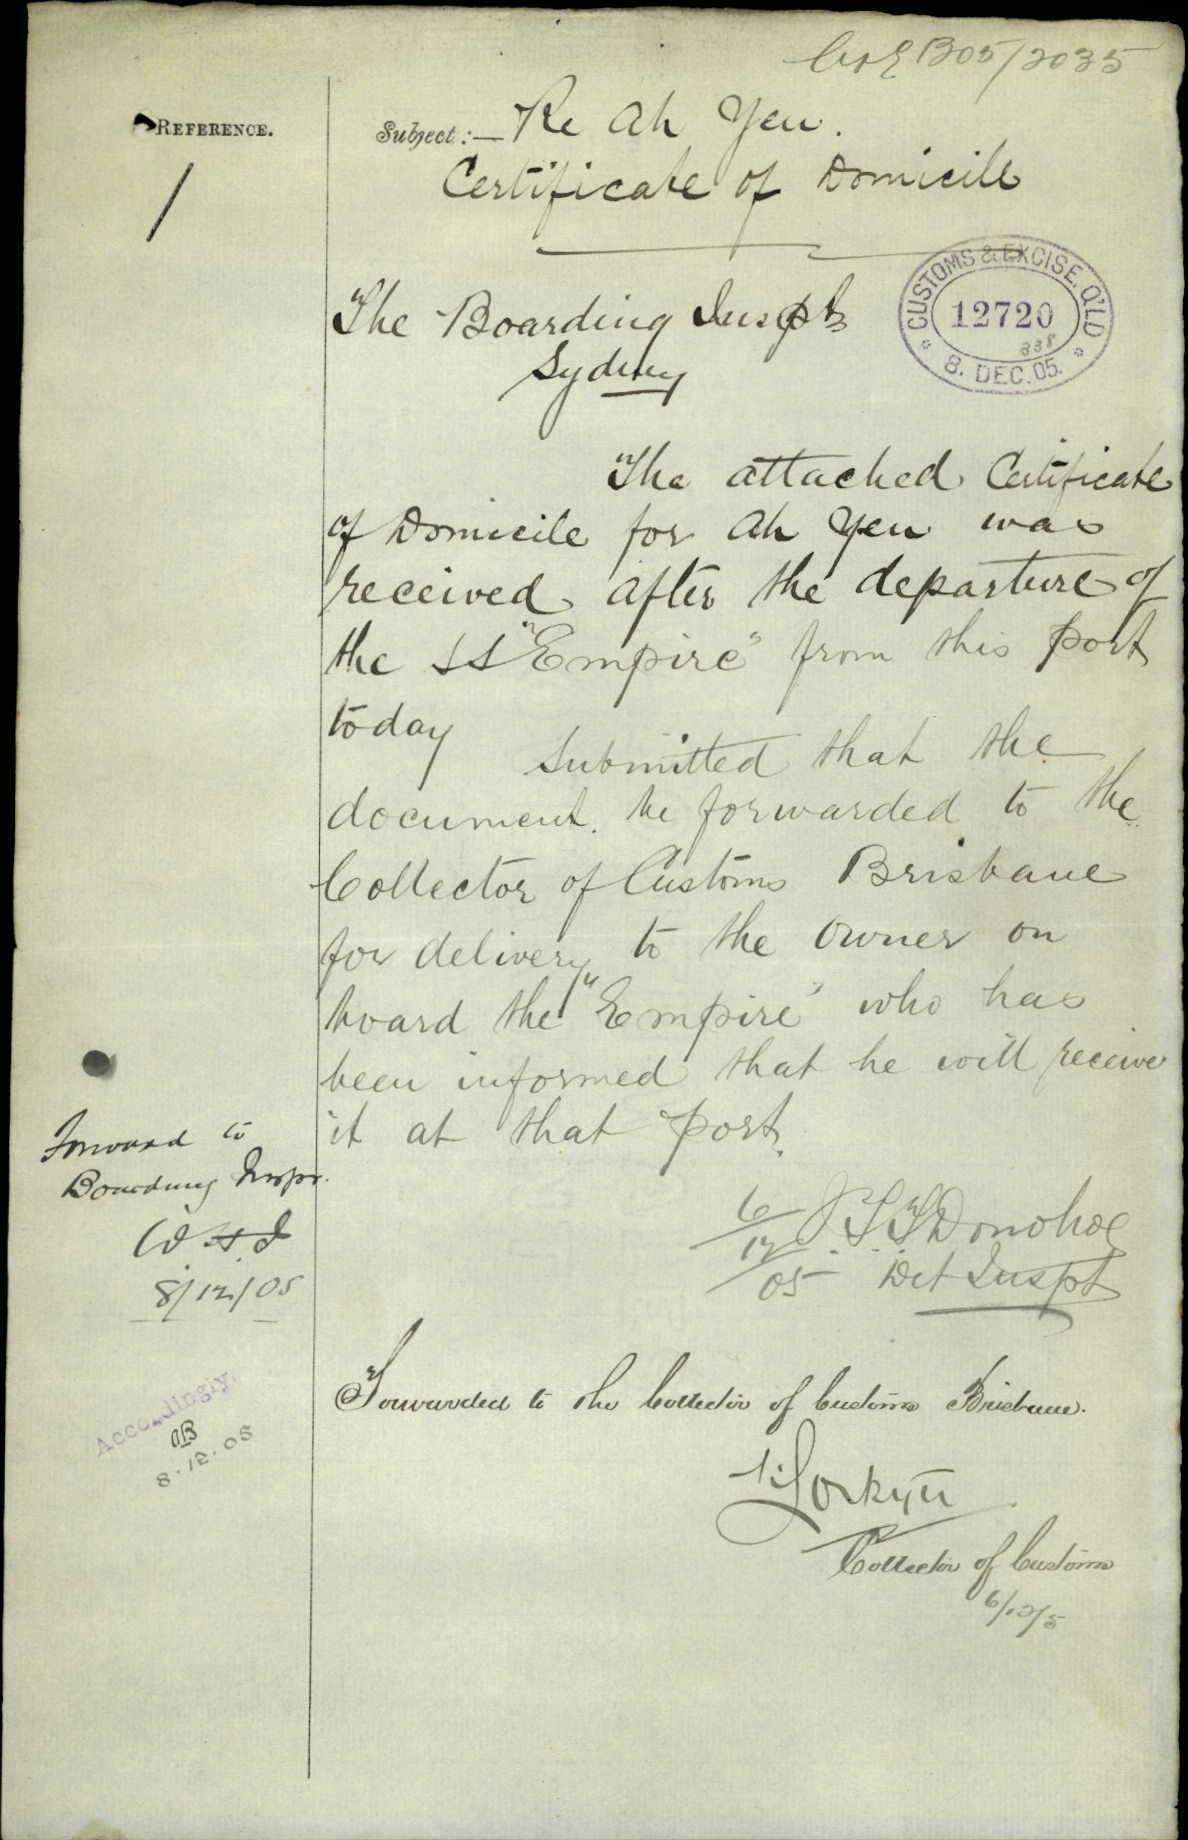 C&E B05/2035
REFERENCE.
1
Subject:— Re Ah Yen.
Certificate of Domicile
CUSTOMS & EXCISE. Q'LD
12720
338
8. DEC. 05.
The Boarding Inspt
Sydney
The attached Certificate
of Domicile for Ah Yen was
received after the departure of
the SS "Empire" from this port
today
Submitted that the
document be forwarded to the
Collector of Customs Brisbane
for delivery to the owner on
board the "Empire" who has
been informed that he will receive
it at that port.
6/12/05 J.T.T. Donohoe
Det Inspt
Forward to
Boarding Inspr.
W.H.I
8/12/05
Accordingly.
8.12.05
Forwarded to the Collector of Customs Brisbane.
Collector of Customs
6/12/5